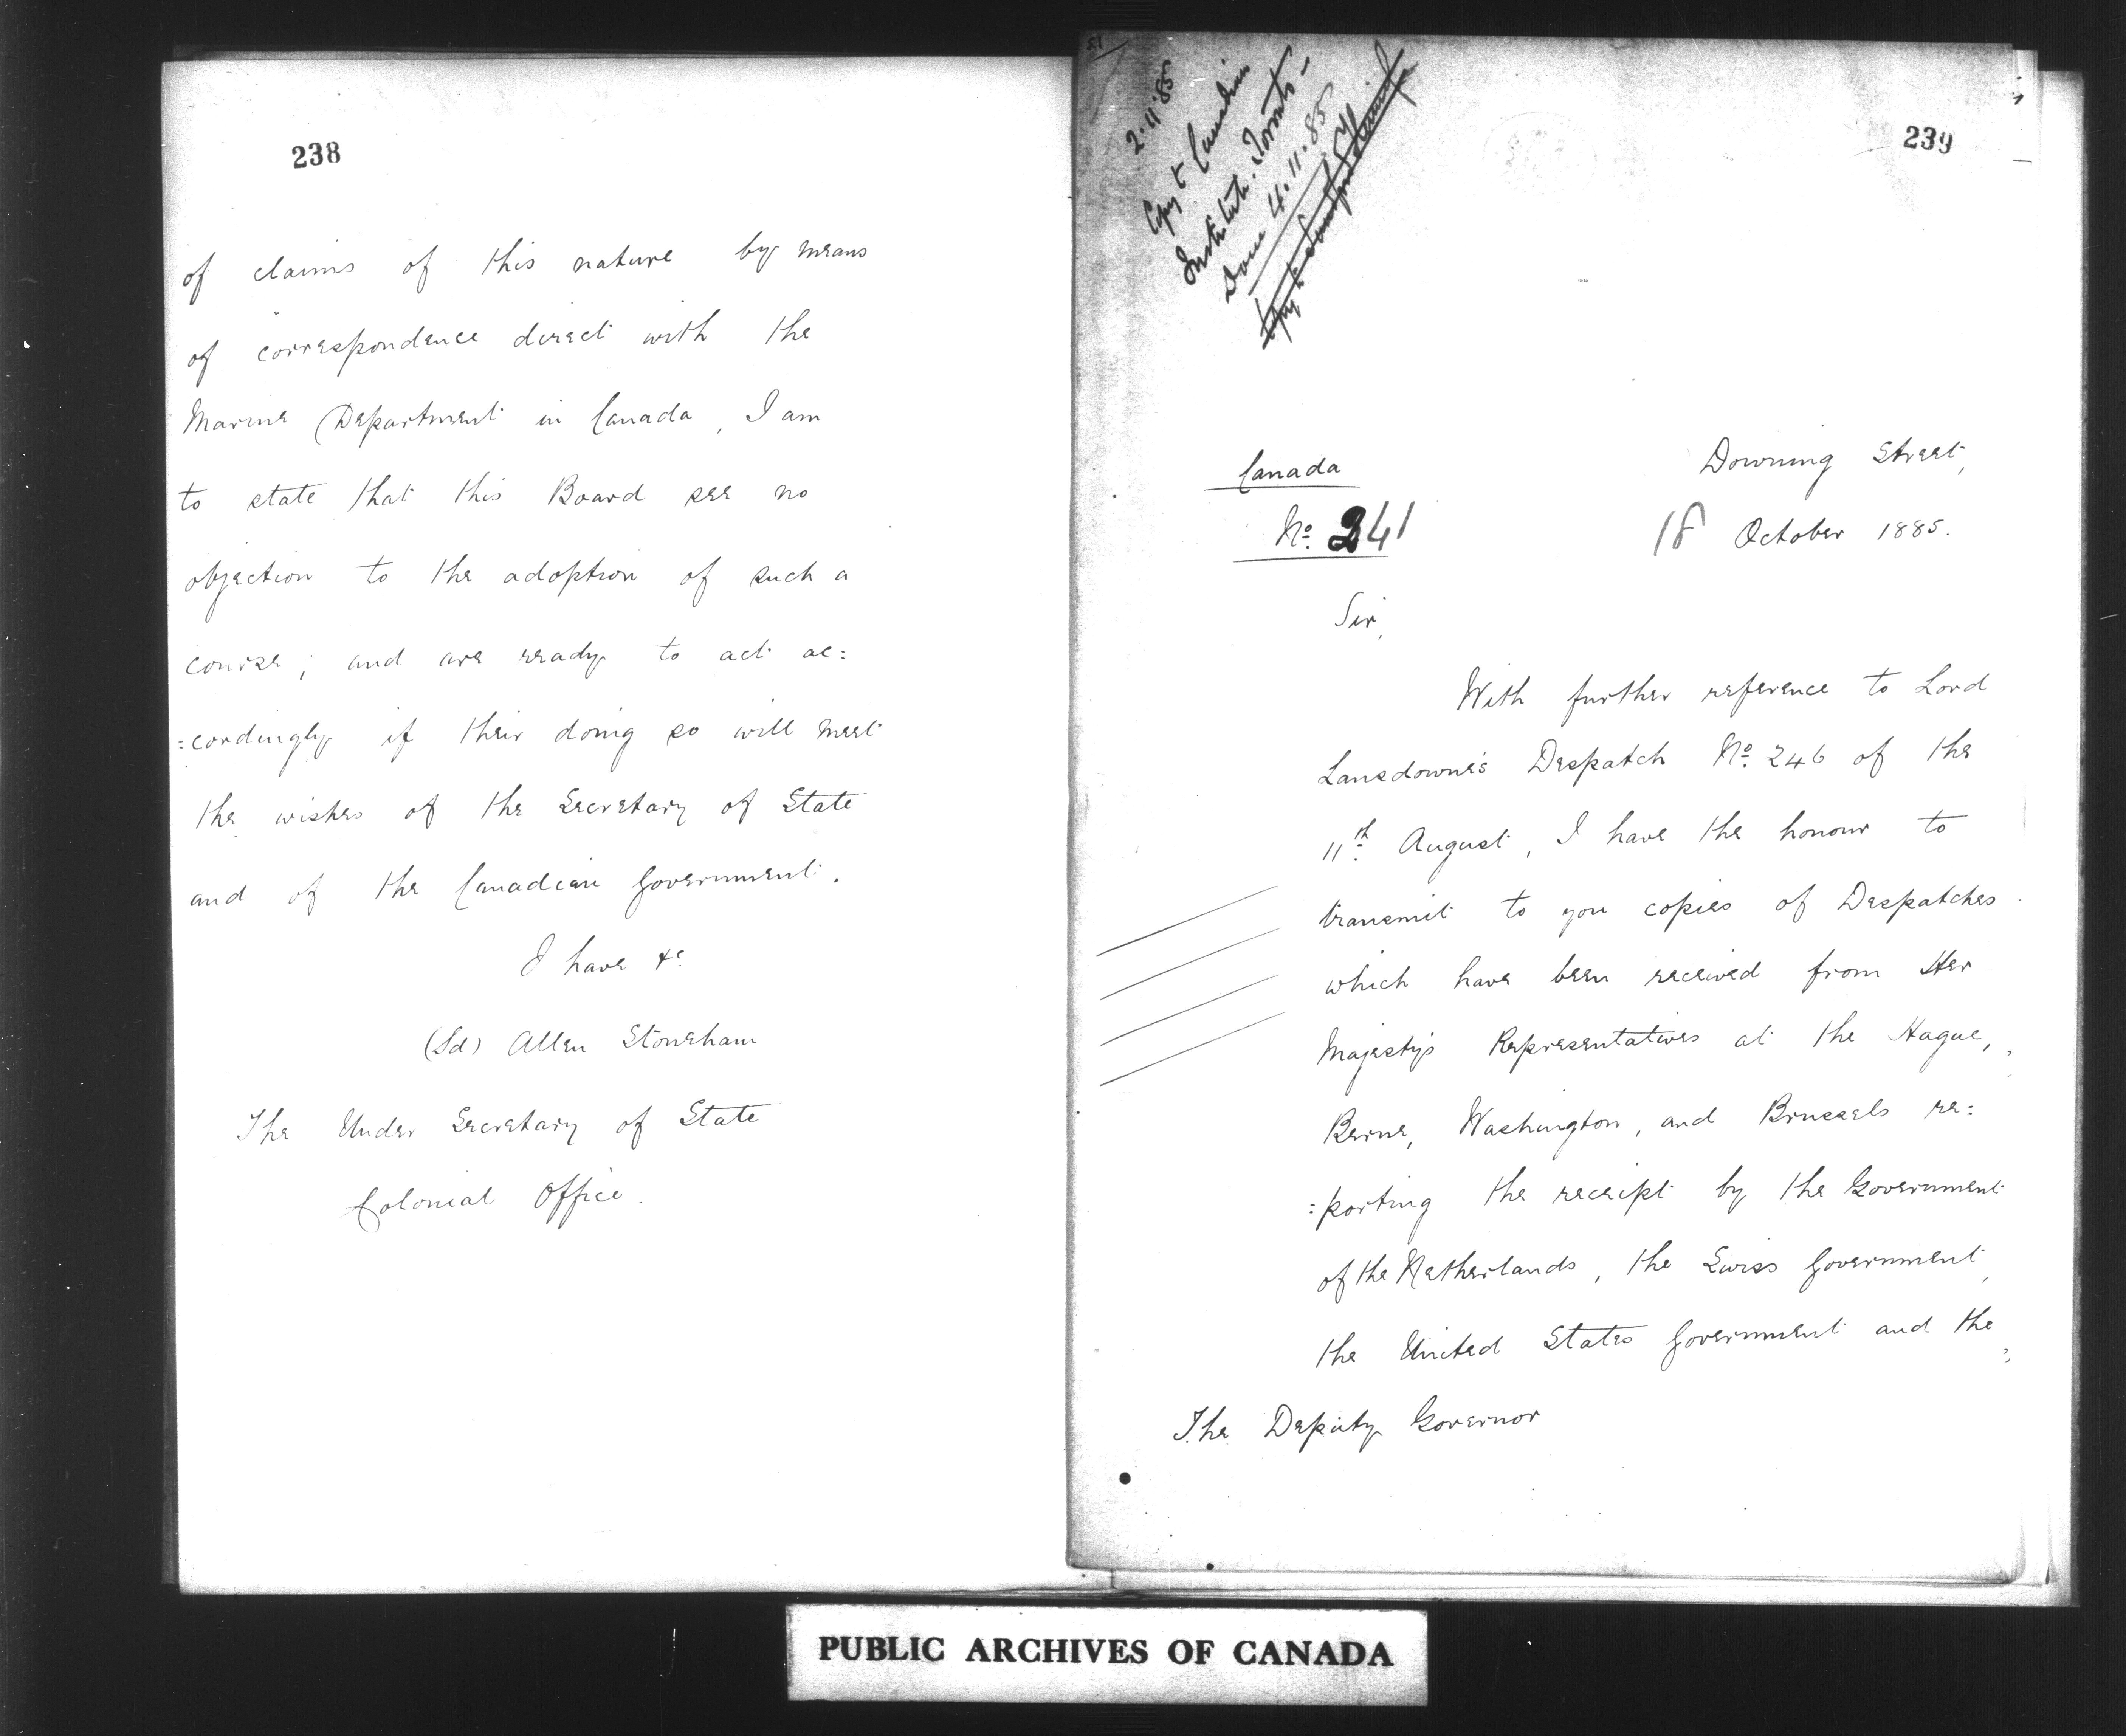 238
of claims of this nature by means
of correspondence direct with the
Marine Department in Canada, I am
to state that this Board see no
objection to the adoption of such a
course; and are ready to act ac:
:cordingly if their doing so will meet
the wishes of the Secretary of State
and of the Canadian Government.
I have &c
(Sd) Allen Stoneham
The Under Secretary of State
Colonial Office.
51
2.11.85
Copy to Canadian
Institute. Toronto-
Done 4.11.85
239
Canada
No. 241
Downing Street,
18 October 1885.
Sir,
With further reference to Lord
Lansdowne's Despatch No. 246 of the
11th August, I have the honour to
transmit to you copies of Despatches
which have been received from Her
Majesty's Representatives at the Hague,
Berne, Washington, and Brussels re:
:porting the receipt by the Government
of the Netherlands, the Swiss Government,
the United States Government and the
The Deputy Governor
PUBLIC ARCHIVES OF CANADA